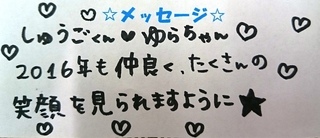 ☆メッセージ☆
しゅうごくん♥ゆらちゃん♡
2016年も仲良く、たくさんの
笑顔を見られますように★